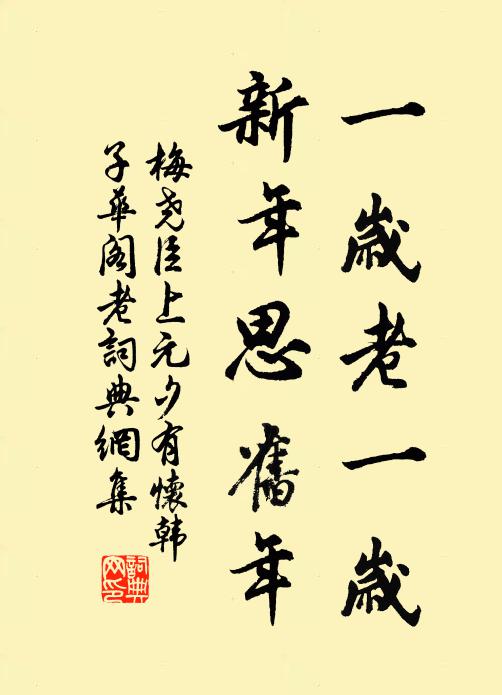 一歲老一歲
新年思舊年
梅尧臣上元夕有懷韩
子華阁老詞典網集
詞典网印